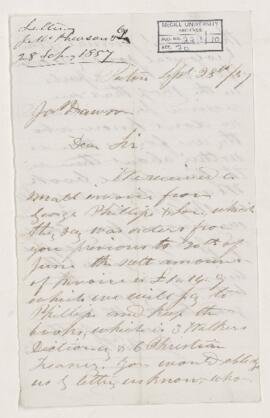 Letter
J. McPherson & Co
28 Sep, 1857
McGILL UNIVERSITY
ARCHIVES
ACC. NO.
Pictou Sept 28th /57
Jas Dawson
Dear Sir
We received a
small invoice from
George Phillips & Son, which
they say was orders from
you previous to 30th of
June the nett amount
of Invoice is
which we will pay to
Phillips and keep the
books, which is 3 Walkers
Dictionary & 6 Christian
Treasury. You would oblige
us by letting us know, who